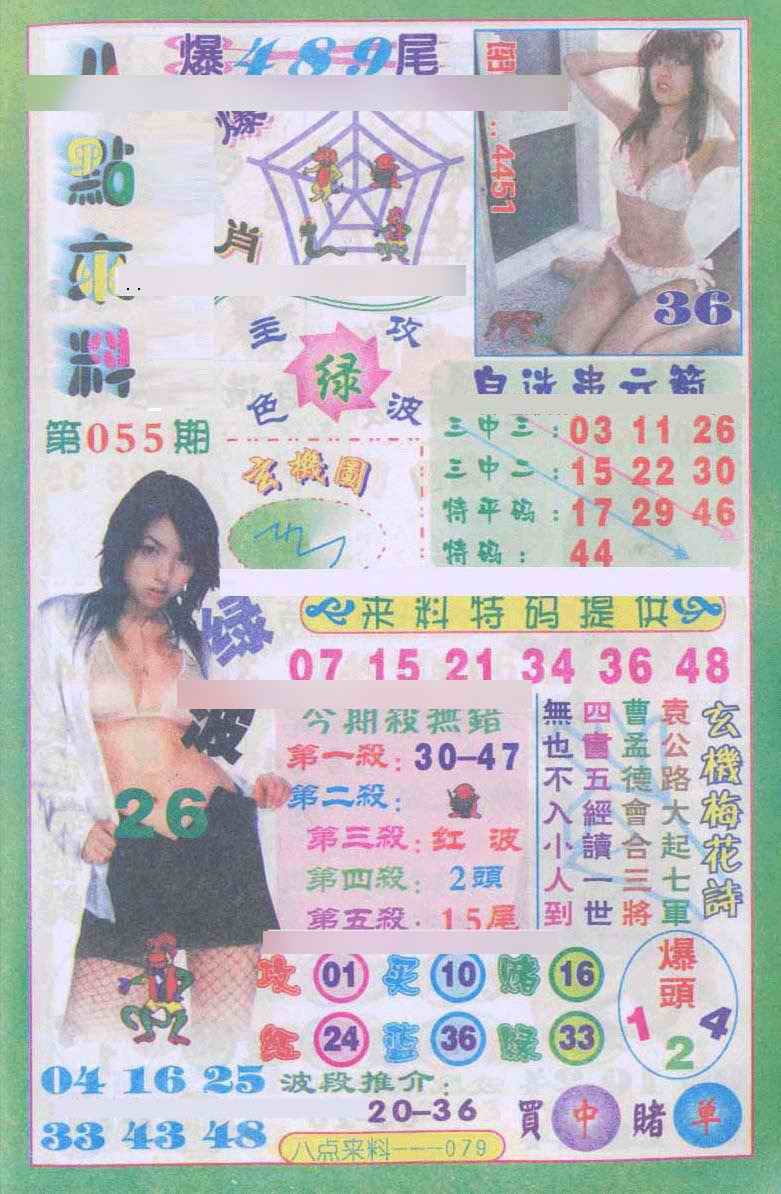 爆489尾
點來料
第055期
爆
肖
4451
36
主攻
绿
色波
三中三：03 11 26
三中二：15 22 30
特平码：17 29 46
特码：44
玄機圖
来料特码提供
07 15 21 34 36 48
绿
波
26
今期殺撫錯
第一殺：30–47
第二殺：
第三殺：红波
第四殺：2頭
第五殺：15尾
玄機梅花詩
袁公路大起七軍
曹孟德會合三將
四書五經讀一世
無也不入小人到
攻 01 买 10 赌 16
红 24 蓝 36 绿 33
爆頭
1 2 4
04 16 25
33 43 48
波段推介：
20–36
買中賭单
八点来料---079